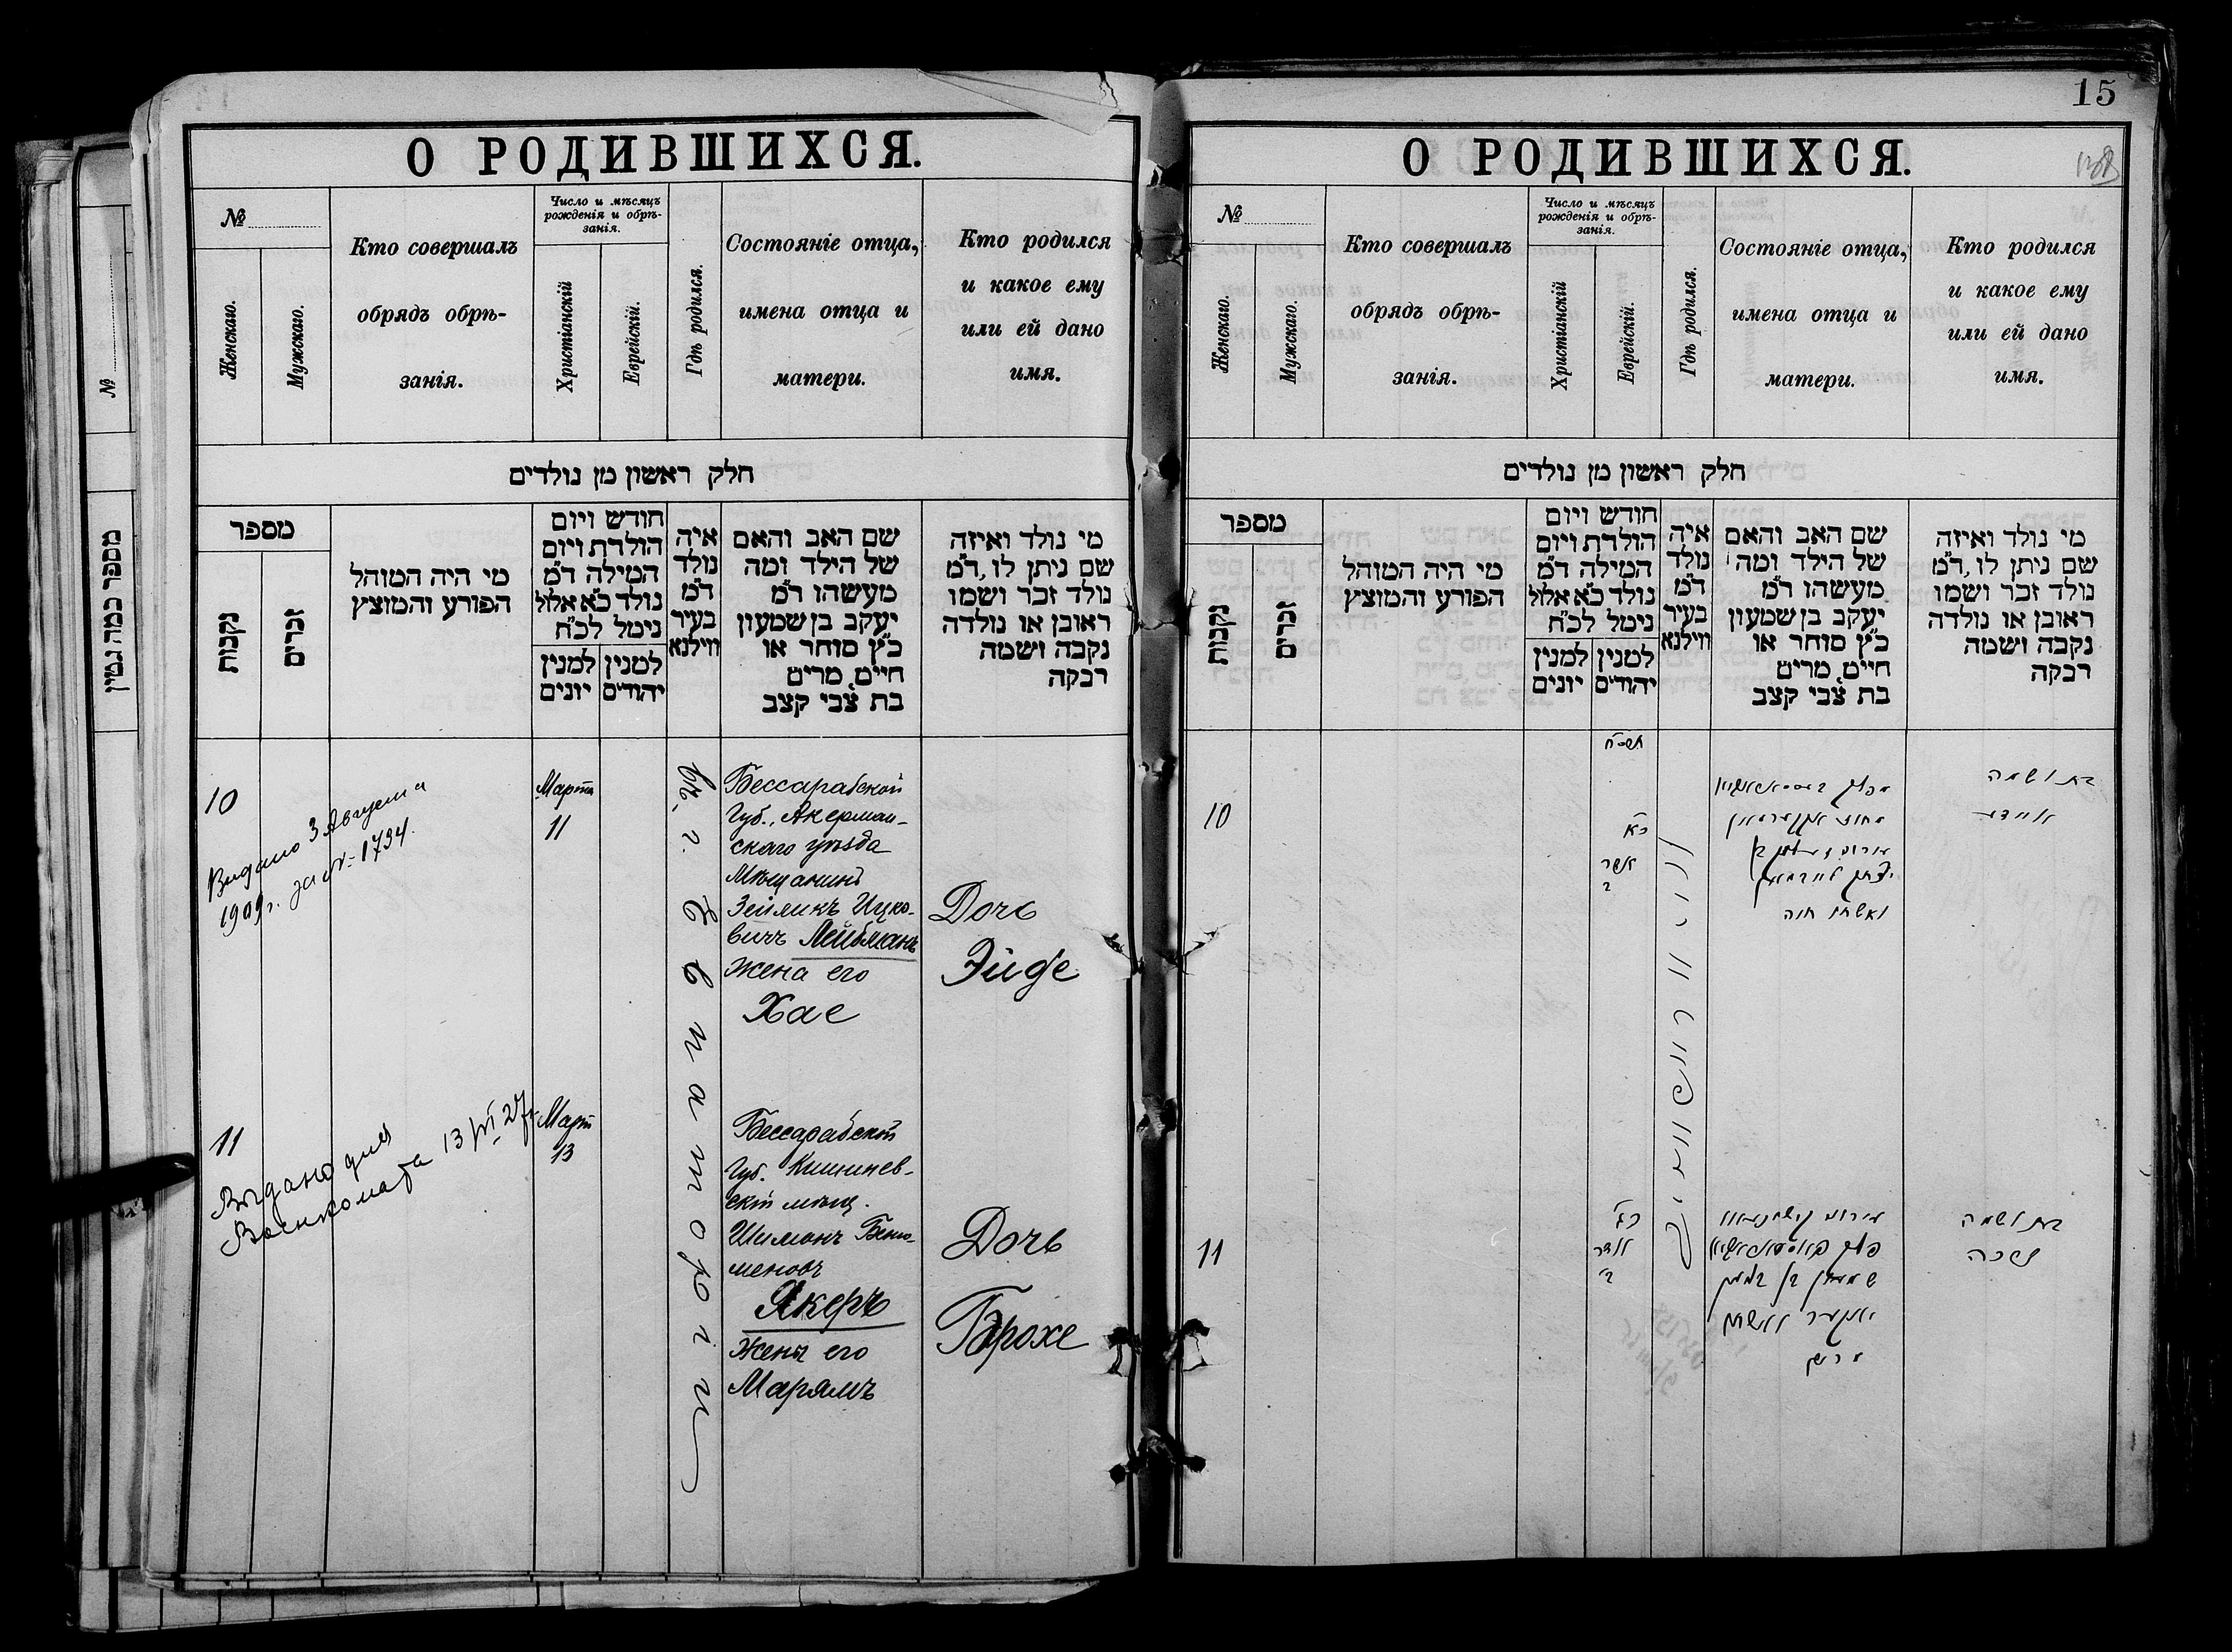 О РОДИВШИХСЯ.
№
Женскаго.
Мужскаго.
Кто совершалъ
обрядъ обрѣ-
занія.
Число и мѣсяцъ
рожденія и обрѣ-
занія.
Христіанскій
Еврейскій.
Гдѣ родился.
Состояніе отца,
имена отца и
матери.
Кто родился
и какое ему
или ей дано
имя.
חלק ראשון מן נולדים
מספר
נקבות
זכרים
מי היה המוהל
הפורע והמוצץ
חודש ויום
הולדת ויום
המילה ד״מ
נולד כ״א אלול
נימל לכ״ח
למנין יונים
למנין יהודים
איה
נולד
ד״מ
בעיר
ווילנא
שם האב והאם
של הילד ומה
מעשהו ד״מ
יעקב בן שמעון
כ״ץ סוחר או
חיים, מרים
בת צבי קצב
מי נולד ואיזה
שם ניתן לו, ד״מ
נולד זכר ושמו
ראובן או נולדה
נקבה ושמה
רבקה
10
Выдано 3 Августа
1909 г. за № 1734.
Марта
11
въ г. Евпаторіи
Бессарабской
Губ., Акерман-
скаго уѣзда
Мѣщанинъ
Зейликъ Ицко-
вичъ Лейбманъ
Жена его
Хае
Дочь
Эйде
11
Выдано для
Военкомата 13/VI 27 г.
Март
13
Бессарабской
Губ. Кишинев-
скій мѣщ.
Шимонъ Бенью-
меновъ
Якеръ
Жена его
Марямъ
Дочь
Брохе
15
О РОДИВШИХСЯ.
№
Женскаго.
Мужскаго.
Кто совершалъ
обрядъ обрѣ-
занія.
Число и мѣсяцъ
рожденія и обрѣ-
занія.
Христіанскій
Еврейскій.
Гдѣ родился.
Состояніе отца,
имена отца и
матери.
Кто родился
и какое ему
или ей дано
имя.
חלק ראשון מן נולדים
מספר
נקבות
זכרים
מי היה המוהל
הפורע והמוצץ
חודש ויום
הולדת ויום
המילה ד״מ
נולד כ״א אלול
נימל לכ״ח
למנין יונים
למנין יהודים
איה
נולד
ד״מ
בעיר
ווילנא
שם האב והאם
של הילד ומה
מעשהו ד״מ
יעקב בן שמעון
כ״ץ סוחר או
חיים, מרים
בת צבי קצב
מי נולד ואיזה
שם ניתן לו, ד״מ
נולד זכר ושמו
ראובן או נולדה
נקבה ושמה
רבקה
10
כ״א
אדר
ב׳
ואשתו חוה
בת ושמה
איידע
11
כ״ג
אדר
ב׳
שמעון בן בנימין
יאקער ואשתו
מרים
בת ושמה